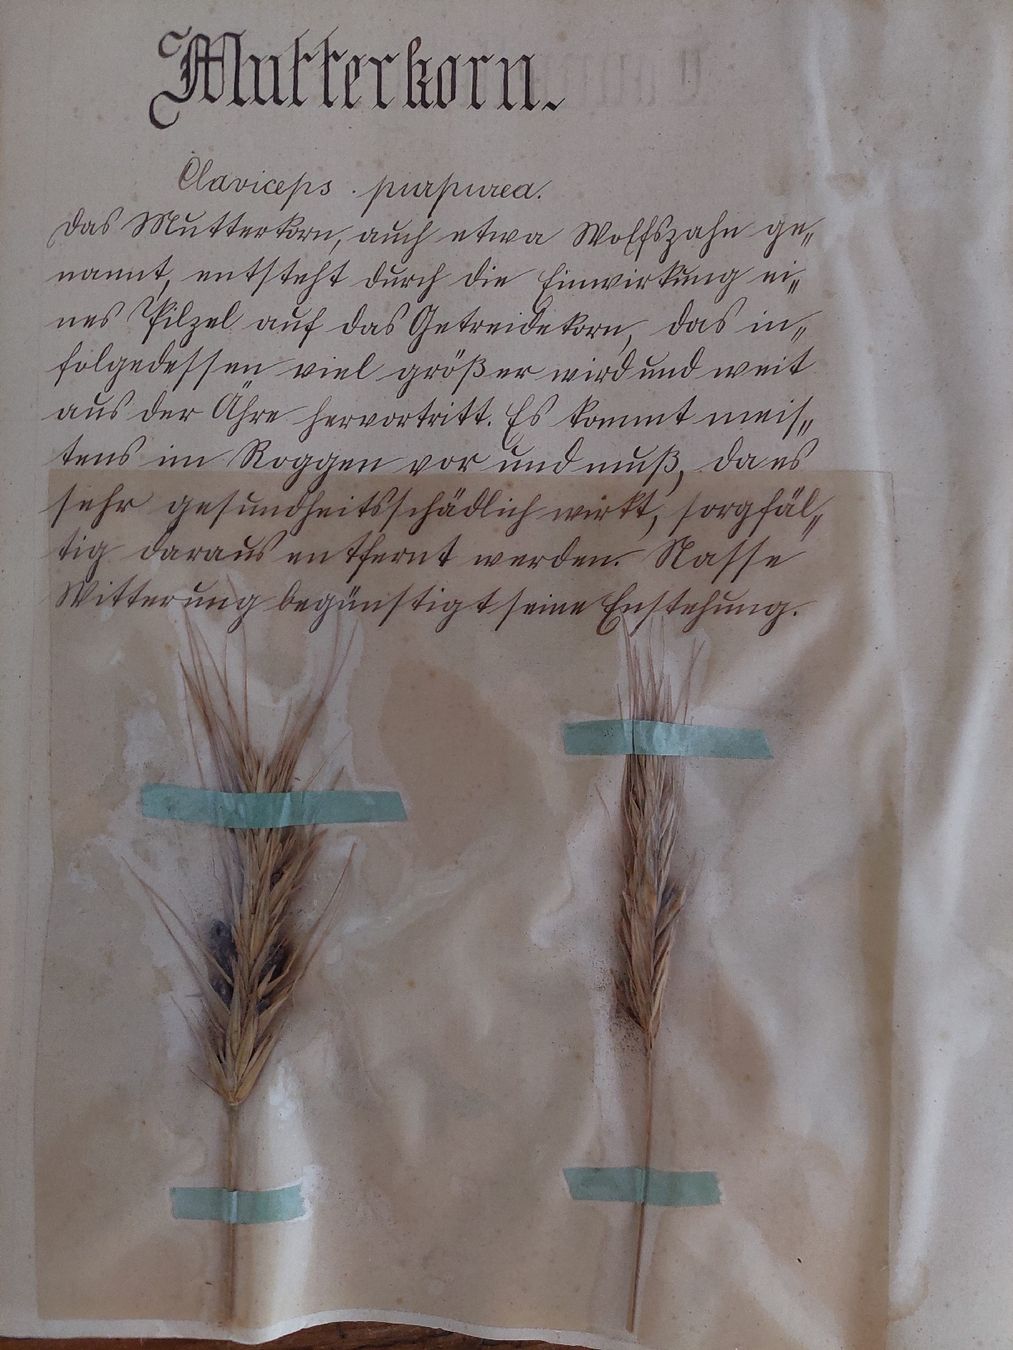 Mutterkorn.
Claviceps purpurea.
Das Mutterkorn, auch etwa Wolfszahn ge„
nannt, entsteht durch die Einwirkung ei„
nes Pilzes auf das Getreidekorn, das in„
folgedessen viel größer wird und weit
aus der Ähre hervortritt. Es kommt meis„
tens im Roggen vor und muß, da es
sehr gesundheitsschädlich wirkt, sorgfäl„
tig daraus entfernt werden. Nasse
Witterung begünstigt seine Enstehung.